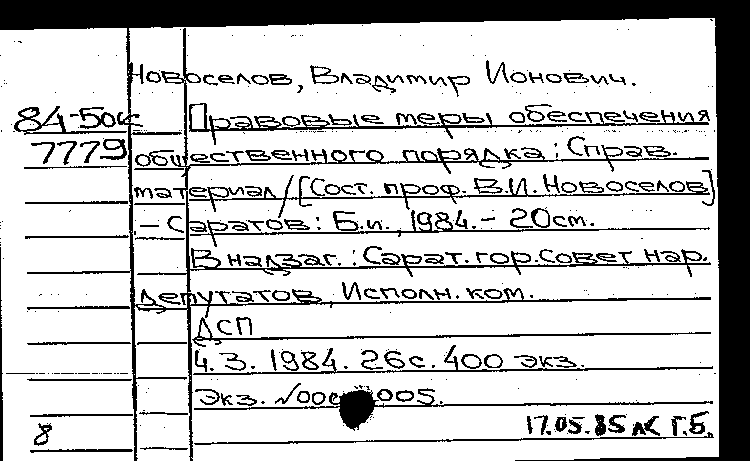 Новоселов, Владимир Ионович.
84-50к Правовые меры обеспечения
7779 общественного порядка : Справ.
материал / [Сост. проф. В.И. Новоселов]
– Саратов : Б.и., 1984. – 20 см.
В надзаг. : Сарат. гор. совет нар.
депутатов, Исполн. ком.
ДСП
Ч. 3. 1984. 26 с. 400 экз.
Экз. 005.
8 17.05.85 Г.Б.